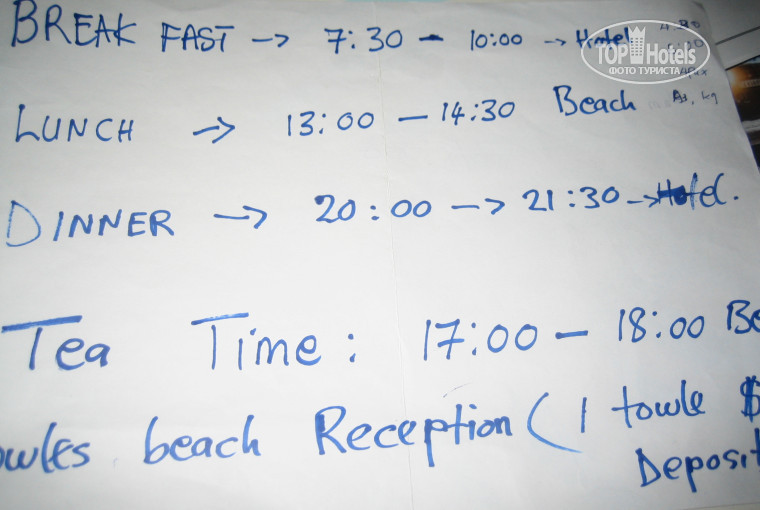 BREAK FAST -> 7:30 - 10:00 -> Hotel
TOP Hotels
ФОТО ТУРИСТА
LUNCH -> 13:00 - 14:30 Beach
DINNER -> 20:00 -> 21:30 -> Hotel.
Tea Time: 17:00 - 18:00 Be
owles beach Reception ( 1 towle $
Deposit